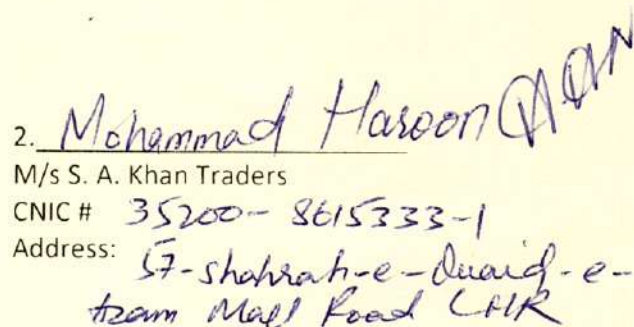 2. Mohammad Haroon
M/s S. A. Khan Traders
CNIC # 35200-8615333-1
Address: 57-shahrah-e-Quaid-e-
Azam Mall Road LHR